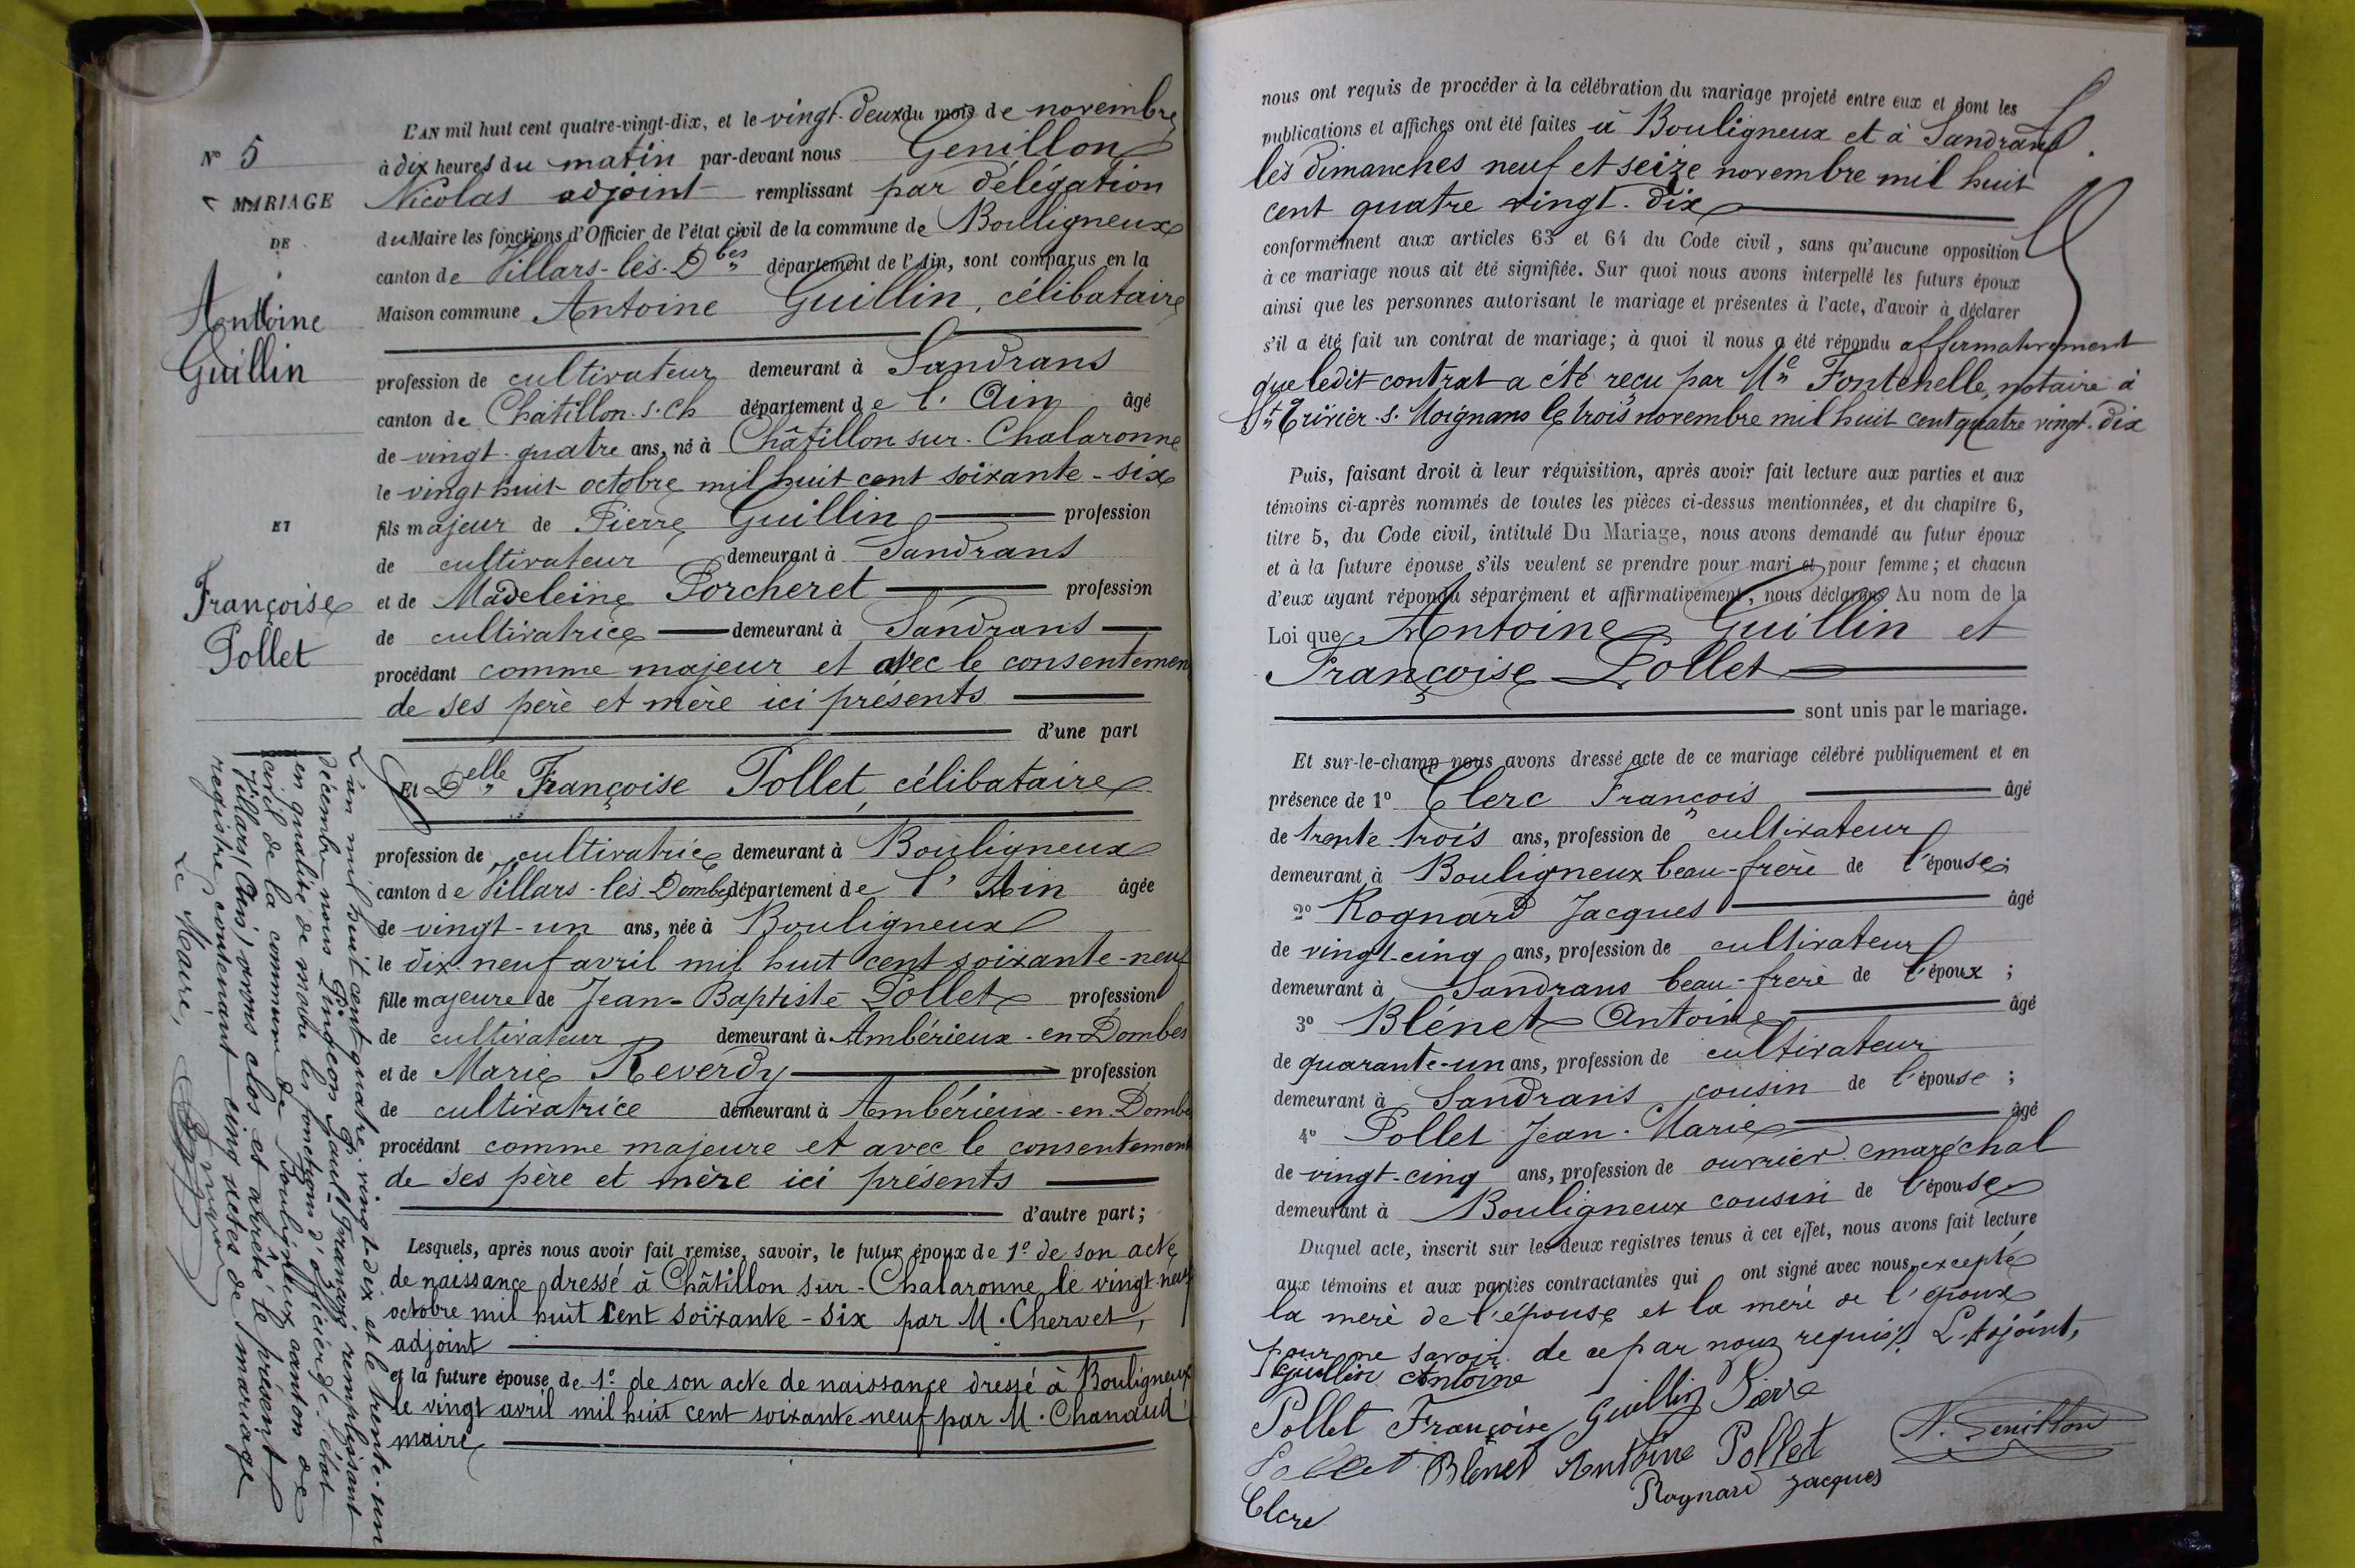 N° 5
MARIAGE
DE
Antoine
Guillin
ET
Françoise
Pollet
L'AN mil huit cent quatre-vingt-dix, et le vingt-deux du mois de novembre
à dix heures du matin par-devant nous Genillon
Nicolas adjoint remplissant par délégation
du Maire les fonctions d'Officier de l'état civil de la commune de Bouligneux
canton de Villars-les-Dbes département de l'Ain, sont comparus en la
Maison commune Antoine Guillin, célibataire
profession de cultivateur demeurant à Sandrans
canton de Châtillon s. Ch département de l'Ain âgé
de vingt-quatre ans, né à Châtillon sur-Chalaronne
le vingt huit octobre mil huit cent soixante-six
fils majeur de Pierre Guillin profession
de cultivateur demeurant à Sandrans
et de Madeleine Porcheret profession
de cultivatrice demeurant à Sandrans
procédant comme majeur et avec le consentemen
de ses père et mère ici présents
d'une part
Et Delle Françoise Pollet, célibataire
profession de cultivatrice demeurant à Bouligneux
canton de Villars-les-Dombes département de l'Ain âgée
de vingt-un ans, née à Bouligneux
le dix-neuf avril mil huit cent soixante-neuf
fille majeure de Jean-Baptiste Pollet profession
de cultivateur demeurant à Ambérieux-en-Dombes
et de Marie Reverdy profession
de cultivatrice demeurant à Ambérieux-en-Dombe
procédant comme majeure et avec le consentement
de ses père et mère ici présents
d'autre part;
Lesquels, après nous avoir fait remise, savoir, le futur époux de 1° de son acte
de naissance dressé à Châtillon sur-Chalaronne le vingt neuf
octobre mil huit cent soixante-six par M. Chervet,
adjoint
et la future épouse de 1° de son acte de naissance dressé à Bouligneux
le vingt avril mil huit cent soixante neuf par M. Chanaud
maire
L'an mil huit cent quatre-vingt-dix et le trente-un
décembre nous Pingeon Paul François remplissant
en qualité de maire les fonctions d'officier de l'état
civil de la commune de Bouligneux canton de
Villars (Ain) avons clos et arrêté le présent
registre contenant cinq actes de mariage
Le Maire,
nous ont requis de procéder à la célébration du mariage projeté entre eux et dont les
publications et affiches ont été faites à Bouligneux et à Sandrans
les dimanches neuf et seize novembre mil huit
cent quatre vingt-dix
conformément aux articles 63 et 64 du Code civil, sans qu'aucune opposition
à ce mariage nous ait été signifiée. Sur quoi nous avons interpellé les futurs époux
ainsi que les personnes autorisant le mariage et présentes à l'acte, d'avoir à déclarer
s'il a été fait un contrat de mariage; à quoi il nous a été répondu affirmativement
que ledit contrat a été reçu par Me Fontenelle, notaire à
St Trivier s. Moignans le trois novembre mil huit cent quatre vingt-dix
Puis, faisant droit à leur réquisition, après avoir fait lecture aux parties et aux
témoins ci-après nommés de toutes les pièces ci-dessus mentionnées, et du chapitre 6,
titre 5, du Code civil, intitulé Du Mariage, nous avons demandé au futur époux
et à la future épouse s'ils veulent se prendre pour mari et pour femme; et chacun
d'eux ayant répondu séparément et affirmativement, nous déclarons Au nom de la
Loi que Antoine Guillin et
Françoise Pollet
sont unis par le mariage.
Et sur-le-champ nous avons dressé acte de ce mariage célébré publiquement et en
présence de 1° Clerc François âgé
de trente trois ans, profession de cultivateur
demeurant à Bouligneux beau-frère de l'épouse;
2° Rognard Jacques âgé
de vingt-cinq ans, profession de cultivateur
demeurant à Sandrans beau-frère de l'époux;
3° Blénet Antoine âgé
de quarante-un ans, profession de cultivateur
demeurant à Sandrans cousin de l'épouse;
4° Pollet Jean-Marie âgé
de vingt-cinq ans, profession de ouvrier maréchal
demeurant à Bouligneux cousin de l'épouse
Duquel acte, inscrit sur les deux registres tenus à cet effet, nous avons fait lecture
aux témoins et aux parties contractantes qui ont signé avec nous, excepté
la mère de l'épouse et la mère de l'époux
pour ne savoir de ce par nous requis. L'Adjoint,
Guillin Antoine
Pollet Françoise Guillin Pierre
Pollet Blénet Antoine Pollet N. Genillon
Clerc Rognard Jacques